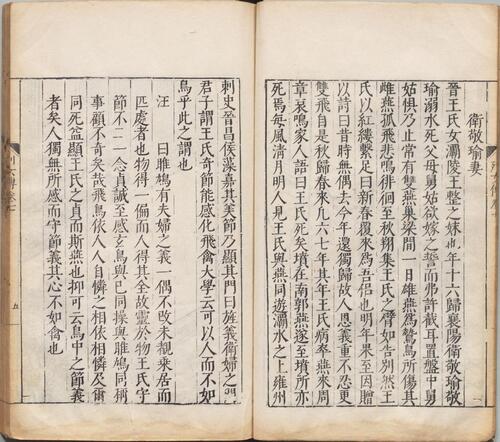 衛敬瑜妻
晉王氏女灞陵王整之妹也年十六歸襄陽衛敬瑜敬
瑜溺水死父母舅姑欲嫁之誓而弗許截耳置盤中舅
姑懼乃止常有雙燕巢梁間一日雄燕為鷙鳥所傷其
雌燕孤飛悲鳴徘徊至秋翔集王氏之臂如告別然王
氏以紅縷繫足曰新春復來為吾侶也明年果至因贈
以詩曰昔時無偶去今年還獨歸故人恩義重不忍更
雙飛自是秋歸春來凡六七年其年王氏病卒燕來周
章哀鳴家人語曰王氏死矣墳在南郭燕遂至墳所亦
死焉每風清月明人見王氏與燕同遊灞水之上雍州
刺史晉昌侯藻嘉其美節乃顯其門曰旌義衛婦之門
君子謂王氏奇節能感化飛禽大學云可以人而不如
鳥乎此之謂也
汪　曰雎鳩有夫婦之義一偶不改未覩乘居而
匹處者也物得一偏而人得其全故靈於物王氏守
節不二一念真誠至感玄鳥與已同操與雎鳩同稱
事顧不奇矣哉飛鳥依人人自憐之相依相憐及爾
同死益顯王氏之貞而斯燕也抑可云鳥中之節義
者矣人獨無所感而守節義其心不如禽也
五